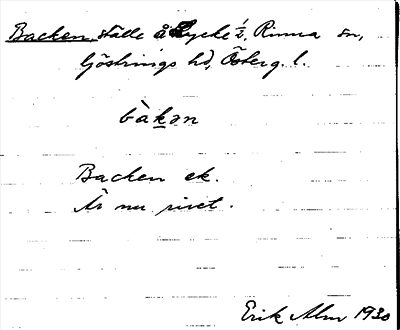 Backen, ställe å Lycke ½, Rinna sn,
Göstrings hd, Österg. l.
bàkən
Backen ek.
Är nu rivet.
Erik Alm 1930